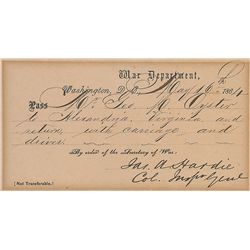 War Department,
Washington, D. C., May 6th 1864
Pass Mr. Geo. M. Oyster
to Alexandria, Virginia and
return, with carriage, and
driver.
By order of the Secretary of War:
Jas. A. Hardie
Col. Insp. Genl
[Not Transferable.]